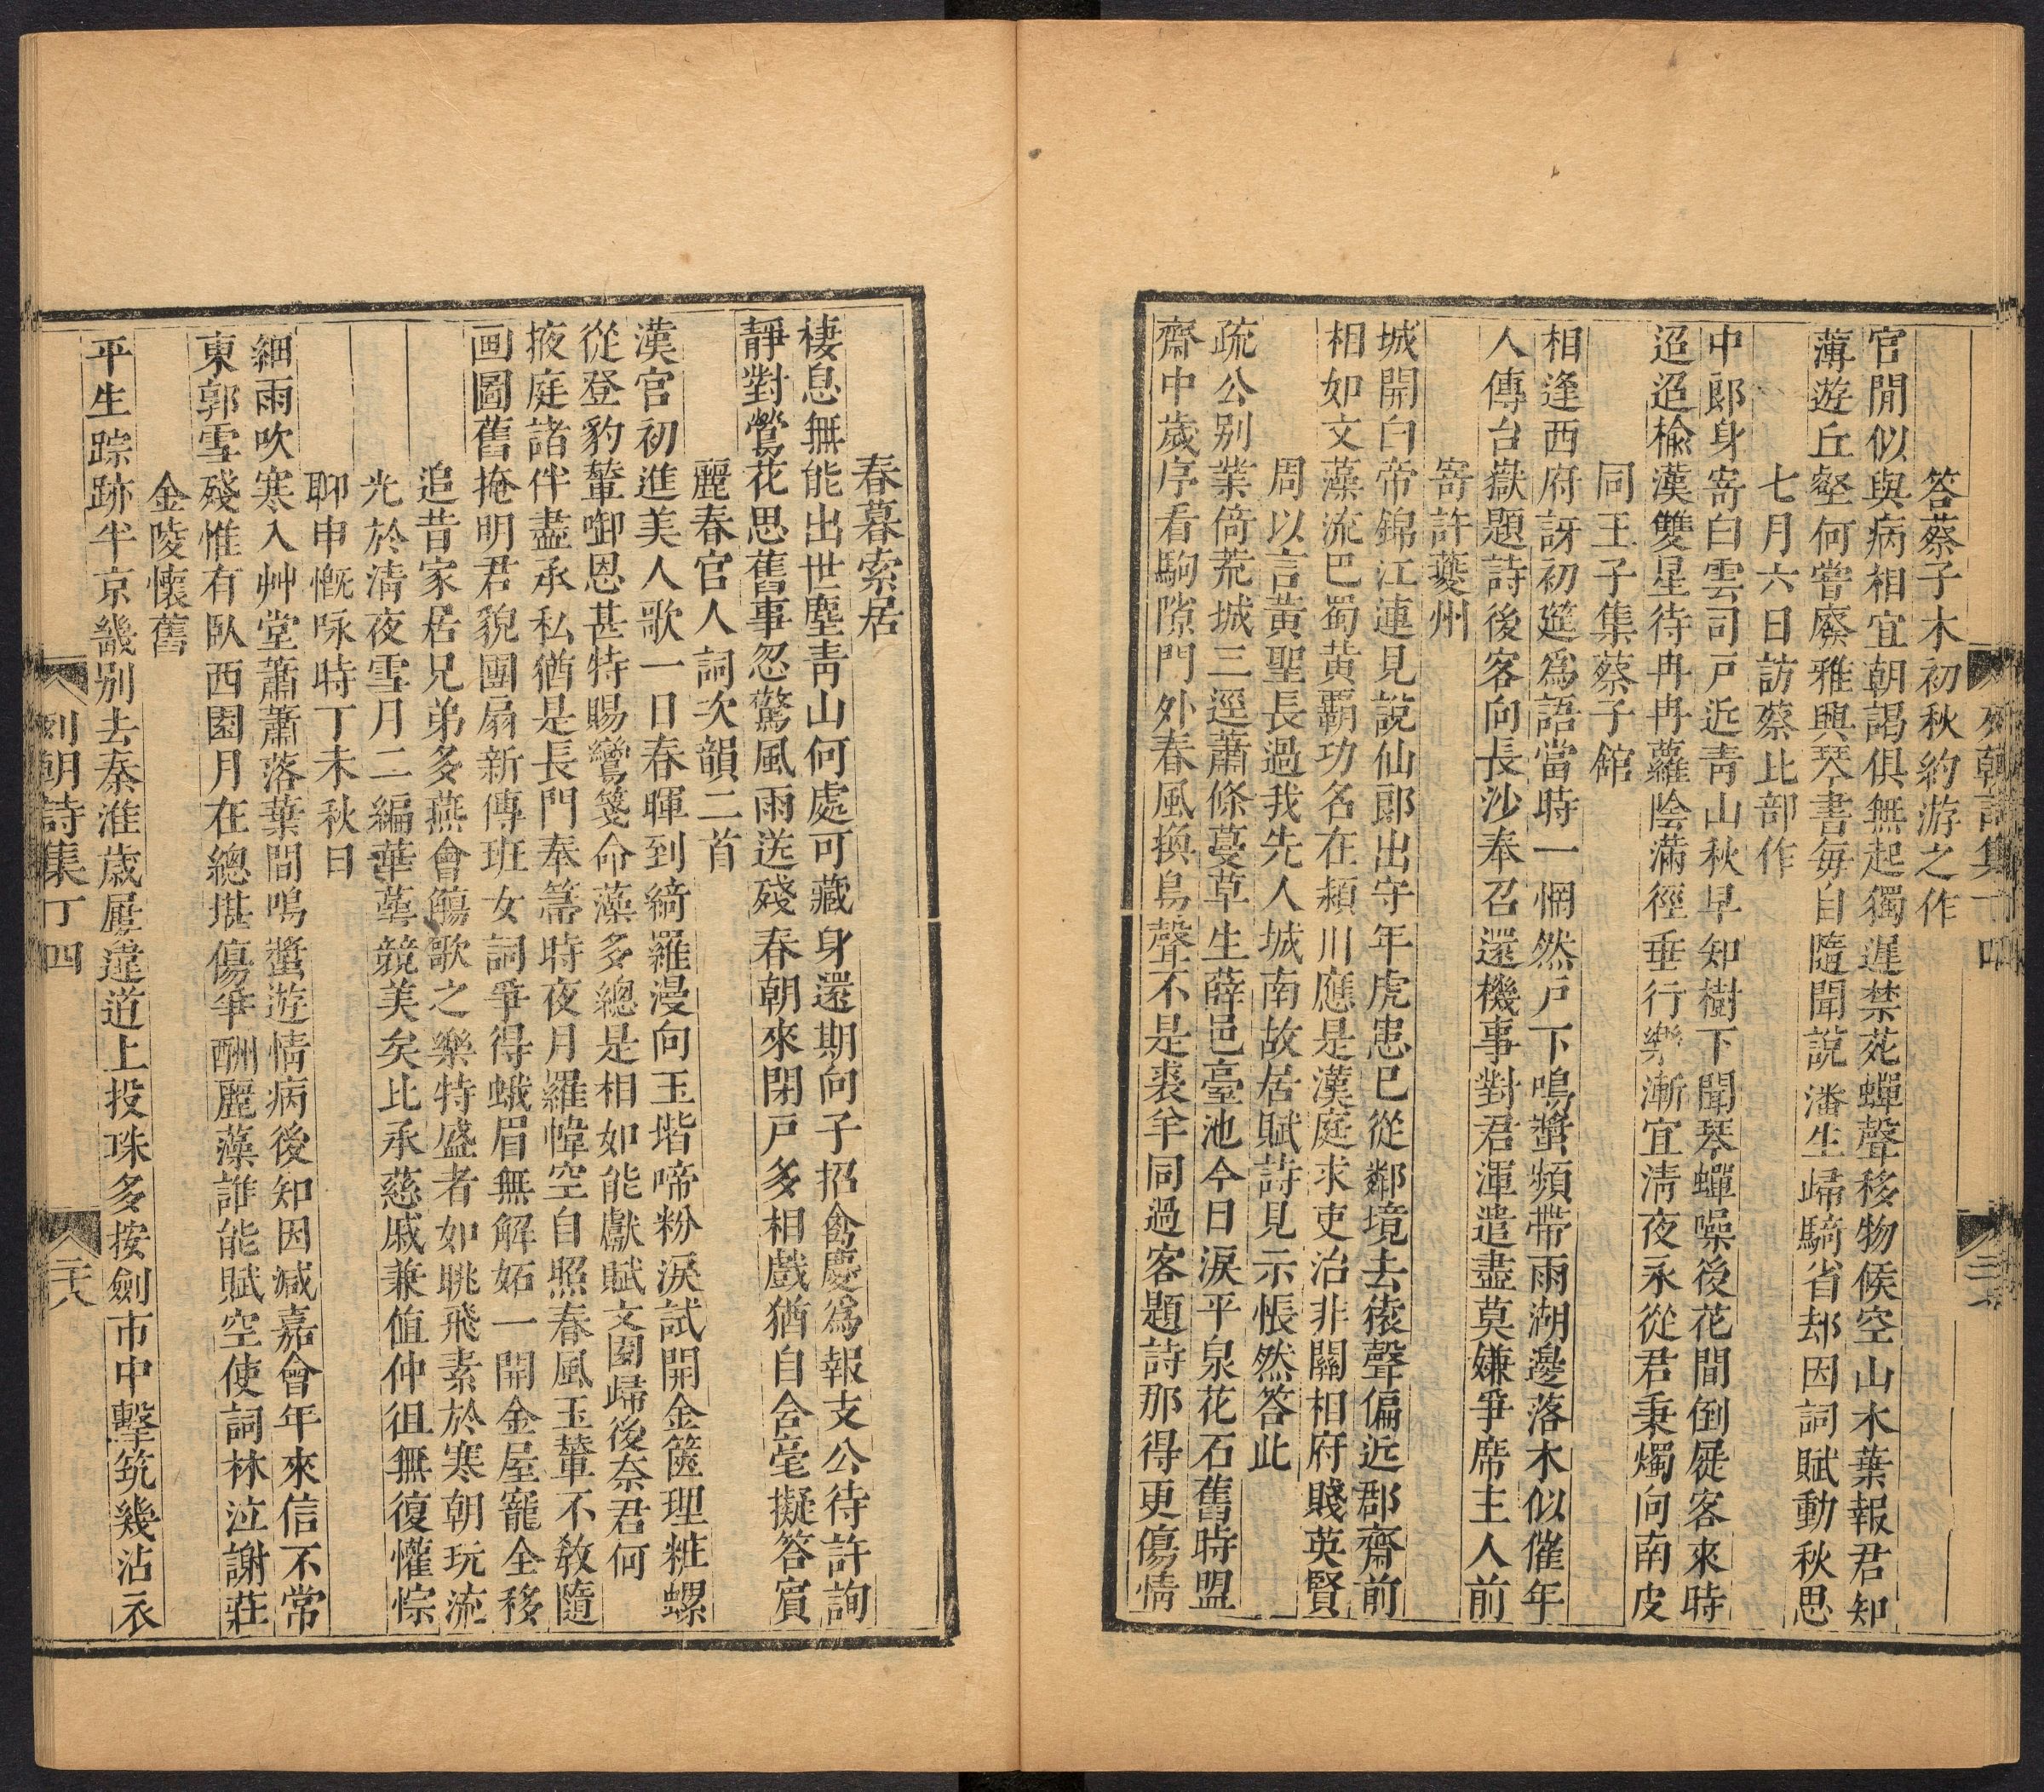 答蔡子木初秋約游之作
官閒似與病相宜朝謁俱無起獨遲禁苑蟬聲移物候空山木葉報君知
薄遊丘壑何嘗廢雅興琴書每自隨聞說潘生歸騎省却因詞賦動秋思
七月六日訪蔡比部作
中郎身寄白雲司戸近靑山秋早知樹下聞琴蟬噪後花間倒屣客來時
迢迢楡漢雙星待冉冉蘿陰滿徑垂行樂漸宜淸夜永從君秉燭向南皮
同王子集蔡子館
相逢西府訝初筵爲語當時一惘然戸下鳴蛩頻帶雨湖邊落木似催年
人傳台嶽題詩後客向長沙奉召還機事對君渾遣盡莫嫌爭席主人前
寄許夔州
城開白帝錦江連見說仙郎出守年虎患已從鄰境去猿聲偏近郡齋前
相如文藻流巴蜀黃覇功名在潁川應是漢庭求吏治非關相府賤英賢
周以言黃聖長過我先人城南故居賦詩見示悵然答此
疏公别業倚荒城三逕蕭條蔓草生薛邑臺池今日淚平泉花石舊時盟
齋中歲序看駒隙門外春風換鳥聲不是裘羊同過客題詩那得更傷情
列朝詩集丁四
春暮索居
棲息無能出世塵靑山何處可藏身還期向子招禽慶爲報支公待許詢
靜對鶯花思舊事忽驚風雨送殘春朝來閉戸多相戲猶自含毫擬答賓
麗春官人詞次韻二首
漢宮初進美人歌一日春暉到綺羅漫向玉堦啼粉淚試開金篋理粧螺
從登豹輦啣恩甚特賜鸞箋命藻多總是相如能獻賦文園歸後奈君何
掖庭諸伴盡承私猶是長門奉箒時夜月羅幃空自照春風玉輦不敎隨
画圖舊掩明君貌團扇新傳班女詞爭得蛾眉無解妬一開金屋寵全移
追昔家居兄弟多燕會觴歌之樂特盛者如眺飛素於寒朝玩流
光於淸夜雪月二編華萼競美矣比承慈戚兼値仲徂無復懽悰
聊申慨咏時丁未秋日
細雨吹寒入艸堂蕭蕭落葉間鳴蛩遊情病後知因減嘉會年來信不常
東郭雪殘惟有臥西園月在總堪傷爭酬麗藻誰能賦空使詞林泣謝莊
金陵懷舊
平生踪跡半京畿別去秦淮歲屢違道上投珠多按劍市中擊筑幾沾衣
列朝詩集丁四